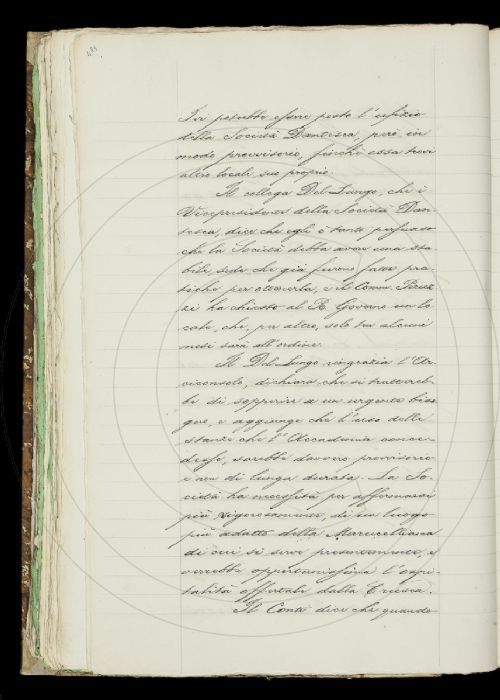 484
Ivi potrebbe essere posto l'ufizio
della Società Dantesca, però in
modo provvisorio, finché essa trovi
altro locale suo proprio.
Il collega Del Lungo, che è
Vicepresidente della Società Dan-
tesca, dice che egli è tanto persuaso
che la Società debba avere una sta-
bile sede che già furono fatte pra-
tiche per ottenerla, e il Comm. Peruz-
zi ha chiesto al R. Governo un lo-
cale, che, per altro, solo tra alcuni
mesi sarà all'ordine.
Il Del Lungo ringrazia l'Ar-
ciconsolo, dichiara che si trattereb-
be di sopperire a un urgente biso-
gno, e aggiunge che l'uso delle
stanze che l'Accademia conce-
desse, sarebbe davvero provvisorio
e non di lunga durata. La So-
cietà ha necessità per affermarsi
più vigorosamente, di un luogo
più adatto della Marucelliana
di cui si serve presentemente, e
verrebbe opportunissima l'ospi-
talità offertale dalla Crusca.
Il Conti dice che quando